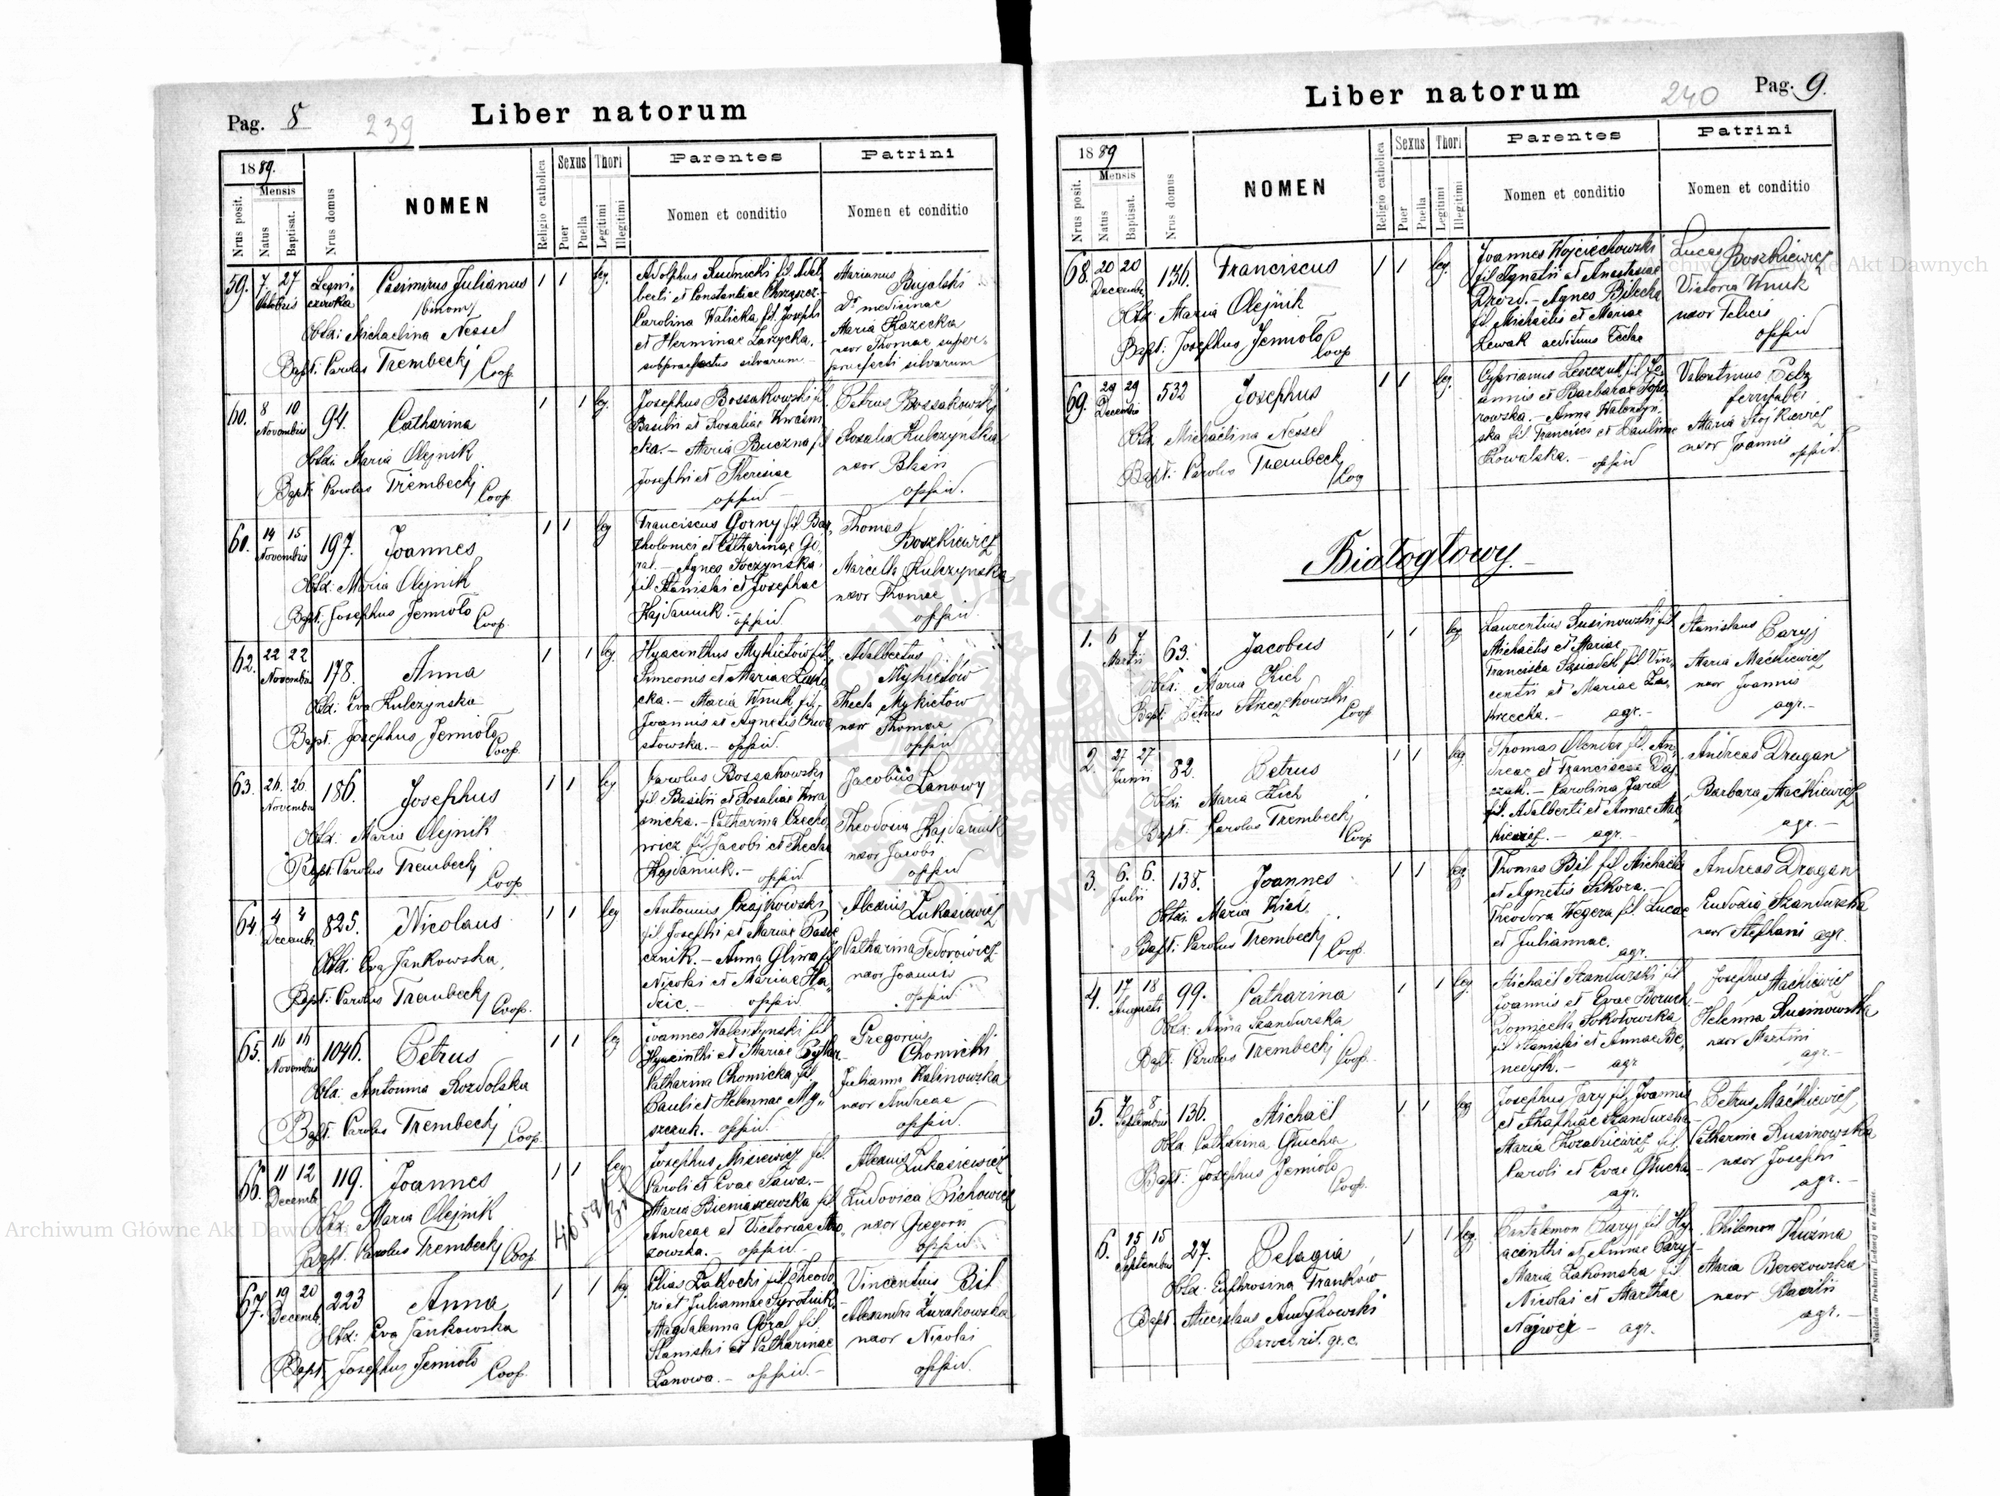 Pag. 8
239
Liber natorum
1889.
Mensis
Nrus posit.
Natus
Baptisat.
Nrus domus
NOMEN
Religio catholica
Sexus
Puer
Puella
Thori
Legitimi
Illegitimi
Parentes
Nomen et conditio
Patrini
Nomen et conditio
59. 7 27 Casimirus Julianus 1 1 leg.
Octobris
/binom/
Obst: Michaelina Nessel
Bapt: Carolus Trembecki Coop
Adolphus Rudnicki fil. Adal
berti et Constantiae
Carolina Walicka fil. Josephi
et Herminae
subpraefectus silvarum
Marianus
Bujalski
Dr medicinae
Maria Kozecka
uxor Thomae super-
praefecti silvarum
60. 8 10 94. Catharina 1 1 leg.
Novembris
Obst: Maria Olejnik
Bapt: Carolus Trembecki Coop
Josephus Bossakowski fil
Basilii et Rosaliae Kwaśni
cka. - Maria Buczna fil
Josephi et Theresiae
oppid
Petrus Bossakowski
Rosalia Kulczynska
uxor Blasii
oppid.
61. 14 15 197. Joannes 1 1 leg
Novembris
Obst: Maria Olejnik
Bapt: Josephus Jemioło Coop.
Franciscus Gorny fil Bar,
tholomei et Catharinae Gó,
ral. - Agnes Soczynska
fil Stanislai et Josephae
Hajdamuk. - oppid.
Thomas
Boszkiewicz
Marcella Kulczynska
uxor Thomae
oppid.
62. 22 22 178. Anna 1 1 leg.
Novembris
Obst: Eva Kulczynska
Bapt. Josephus Jemioło Coop.
Hyacinthus Mykietów fil,
Simeonis et Mariae
cka. - Maria Wnuk fil,
Joannis et Agnetis
stowska. - oppid.
Adalbertus
Mykietów
Thecla Mykietów
uxor Thomae
oppid
63. 26. 26. 186. Josephus 1 1 leg
Novembr
Obst: Maria Olejnik
Bapt: Carolus Trembecki Coop
Carolus Bossakowski
fil Basilii et Rosaliae Kwa
śnicka. - Catharina
wicz fil Jacobi et Theclae
Hajdamuk. - oppid
Jacobus
Łanowy
Theodosia Hajdamuk
uxor Jacobi
oppid
64. 4 4 825. Nicolaus 1 1 leg
Decembr
Obst: Eva Jankowska
Bapt: Carolus Trembecki Coop.
Antonius Czajkowski
fil Josephi et Mariae
cznik. - Anna Gliwa fil
Nicolai et Mariae
- oppid
Alexius
Łukasiewicz
Catharina Fedorowicz
uxor Joannis
oppid
65. 16 16 1046. Petrus 1 1 leg
Novembris
Obst: Antonina Rozdolska
Bapt. Carolus Trembecki Coop.
Joannes Walentynski fil
Hyacinthi et Mariae
Catharina Chomicka fil
Pauli et Helennae My,,
szczuk. - oppid.
Gregorius
Chomicki
Julianna Kalinowska
uxor Andreae
oppid.
66. 11 12 119. Joannes 1 1 leg
Decemb
Obst: Maria Olejnik
Bapt. Carolus Trembecki Coop
Josephus Misiewicz fil
Caroli et Evae Sawa. -
Maria Bieniaszewska fil
Andreae et Victoriae
zowska. - oppid -
Alexius
Łukasiewicz
Ludovica Cichowicz
uxor Gregorii
oppid
67. 19 20 223 Anna 1 1 leg.
Decemb
Obst: Eva Jankowska
Bapt. Josephus Jemioło Coop.
Elias Zakocki fil Theodo,
ri et Juliannae Syrotiuk
Magdalenna Góral fil.
Stanislai et Catharinae
Lanowa. - oppid. -
Vincentius Bil
Alexandra Żurakowska
uxor Nicolai
oppid.
Liber natorum
240
Pag. 9.
1889
Mensis
Nrus posit.
Natus
Baptisat.
Nrus domus
NOMEN
Religio catholica
Sexus
Puer
Puella
Thori
Legitimi
Illegitimi
Parentes
Nomen et conditio
Patrini
Nomen et conditio
68. 20 20 136. Franciscus 1 1 leg.
Decembr
Obst: Maria Olejnik
Bapt: Josephus Jemioło Coop
Joannes Wojciechowski
fil Ignatii et Anastasiae
Drozd. - Agnes Bilecka
fil Michaelis et Mariae
Lewak aedituus Eccliae
Lucas Boszkiewicz
Victoria Wnuk
uxor Felicis
oppid
69. 29 29 532 Josephus 1 1 leg.
Decembris
Obst. Michaëlina Nessel
Bapt: Carolus Trembecki Coop
Cyprianus Leszczuk fil Jo,
annis et Barbarae
rowska. - Anna Walentyn,
ska fil Francisci et Paulinae
Kowalska. - oppid
Valentinus Pelz
ferrifaber
Maria
uxor Joannis
oppid.
Białogłowy. -
1. 6 7 63. Jacobus 1 1 leg
Martii
Obst: Maria Kich
Bapt: Petrus Coop
Laurentius Rusinowski fil
Michaelis et Mariae
Franciska Sąsiadek fil Vin,
centii et Mariae
krzecka. - agr. -
Stanislaus Caryj
Maria Maćkiewicz
uxor Joannis
agr. -
2. 27 27 82. Petrus 1 1 leg
Junii
Obst: Maria Kich
Bapt: Carolus Trembecki Coop
Thomas Olender fil An,
dreae et Franciscae
czuk. - Carolina Jara
fil. Adalberti et Annae Mać
kiewicz. - agr. -
Andreas Dragan
Barbara Maćkiewicz
agr. -
3. 6. 6. 138. Joannes 1 1 leg
Julii
Obst: Maria Kich.
Bapt: Carolus Trembecki Coop.
Thomas Bil fil Michaelis
et Agnetis Sikora. -
Theodora Węgera fil. Lucae
et Juliannae.
agr.
Andreas Dragan
Eudoxia Szandurska
uxor Stephani agr.
4. 17 18 99. Catharina 1 1 leg
Augusti
Obst: Anna Szandurska
Bapt: Carolus Trembecki Coop.
Michaël Szandurski fil
Joannis et Evae Boruch
Domicella Sokołowska
fil Stanislai et Annae Be,
nedyk. - agr
Josephus Maćkiewicz
Helenna Rusinowska
uxor Martini
agr. -
5. 7 8 136. Michaël 1 1 leg
Septembris
Obst Catharina Głucha
Bapt: Josephus Jemioło Coop.
Josephus Jary fil Joannis
et Agaphiae Szandurska
Maria Kozakiewicz fil
Caroli et Evae Głucha
agr.
Petrus Maćkiewicz
Catharina Rusinowska
uxor Josephi
agr. -
6. 15 15 27. Pelagia 1 1 leg.
Septembris
Obst: Euphrosina Frankow
Bapt: Miecislaus
rit. gr. c.
Pantalemon Caryj fil Hy,
acinthi et Annae Cary
Maria Zakomska fil
Nicolai et Marthae
- agr.
Philemon Kuźma
Maria Berezowska
uxor Basilii
agr. -
Nakładem Drukarni Ludowej we Lwowie.
Archiwum Główne Akt Dawnych
Archiwum Główne Akt Dawnych